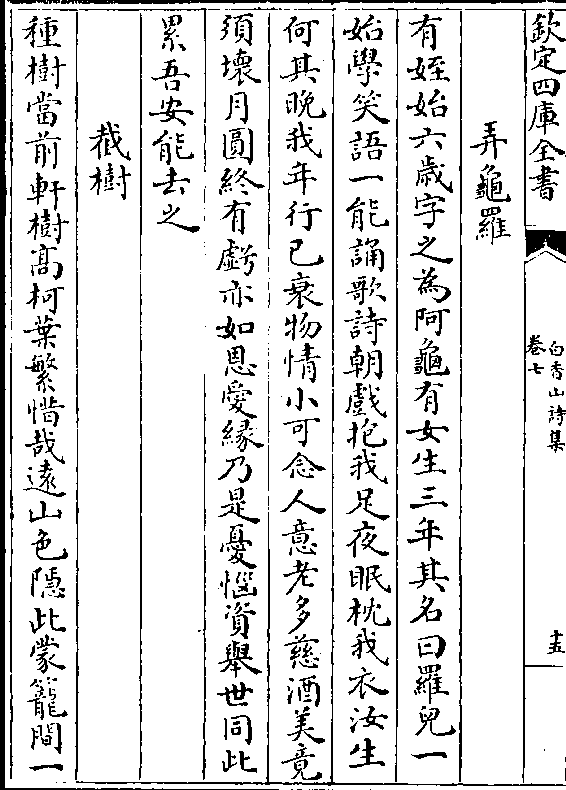 欽定四庫全書
白香山詩集
卷七
十五
弄龜羅
有姪始六歲字之為阿龜有女生三年其名曰羅兒一
始學笑語一能誦歌詩朝戲抱我足夜眠枕我衣汝生
何其晚我年行已衰物情小可念人意老多慈酒美竟
須壞月圓終有虧亦如恩愛緣乃是憂惱資舉世同此
累吾安能去之
截樹
種樹當前軒樹高柯葉繁惜哉遠山色隱此蒙籠間一